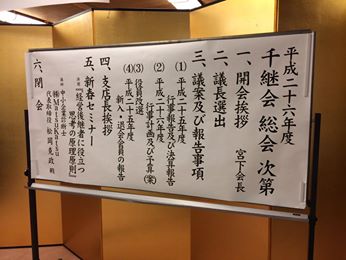 平成二十六年度
千継会 総会 次第
一、開会挨拶 宮下会長
二、議長選出
三、議案及び報告事項
(1) 平成二十五年度
行事報告及び決算報告
(2) 平成二十六年度
行事計画及び予算(案)
(3) 役員改選(案)
(4) 平成二十五年度
新入・退会会員の報告
四、支店長挨拶
五、新春セミナー
演題 『経営後継者に役立つ
思考の原理原則』
講師 中小企業診断士
㈱MatsuKatsu
代表取締役 松岡克政 殿
六、閉会